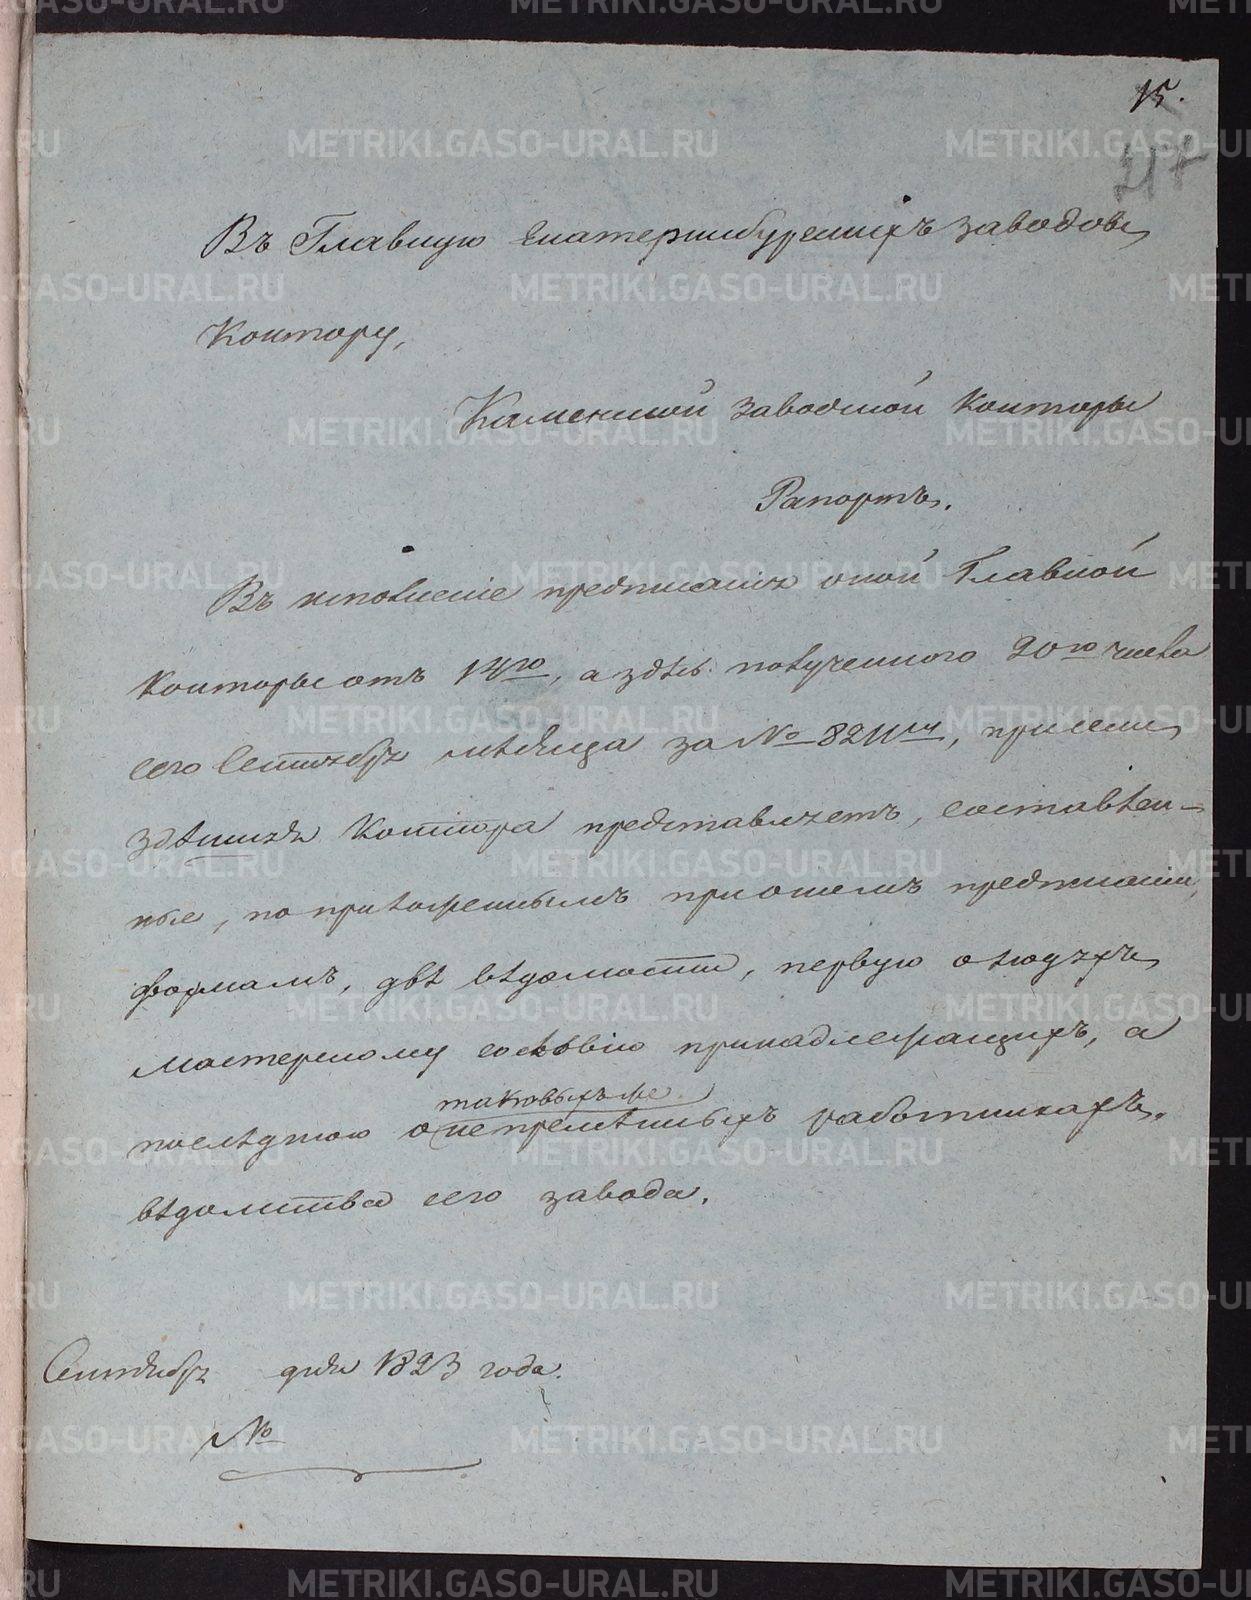 15.
217
Въ Главную Екатеринбургскихъ заводовъ
Контору,
Каменской заводской Конторы
Рапортъ.
Въ исполненіе предписанія оной Главной
Конторы отъ 14го, а здѣсь полученного 20го числа
сего Сентября мѣсяца за № 8211мъ, при семъ
здѣшняя Контора представляетъ, составлен-
ные, по приложеннымъ при ономъ предписаніи,
формамъ, двѣ вѣдомости, первую о людяхъ
мастерскому сословію принадлежащихъ, а
таковыхъ же
послѣднюю о непремѣнныхъ работникахъ,
вѣдомства сего завода.
Сентября дня 1823 года.
№
METRIKI.GASO-URAL.RU